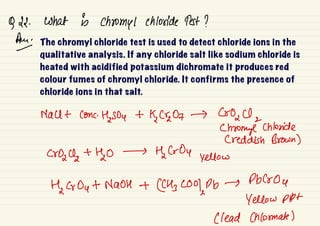 Q 22. What is Chromyl chloride Test?
Ans: The chromyl chloride test is used to detect chloride ions in the
qualitative analysis. If any chloride salt like sodium chloride is
heated with acidified potassium dichromate it produces red
colour fumes of chromyl chloride. It confirms the presence of
chloride ions in that salt.
NaCl + Conc. H₂SO₄ + K₂Cr₂O₇ → CrO₂Cl₂
Chromyl Chloride
(reddish Brown)
CrO₂Cl₂ + H₂O → H₂CrO₄ Yellow
H₂CrO₄ + NaOH + (CH₃COO)₂Pb → PbCrO₄
Yellow ppt
(lead Chromate)